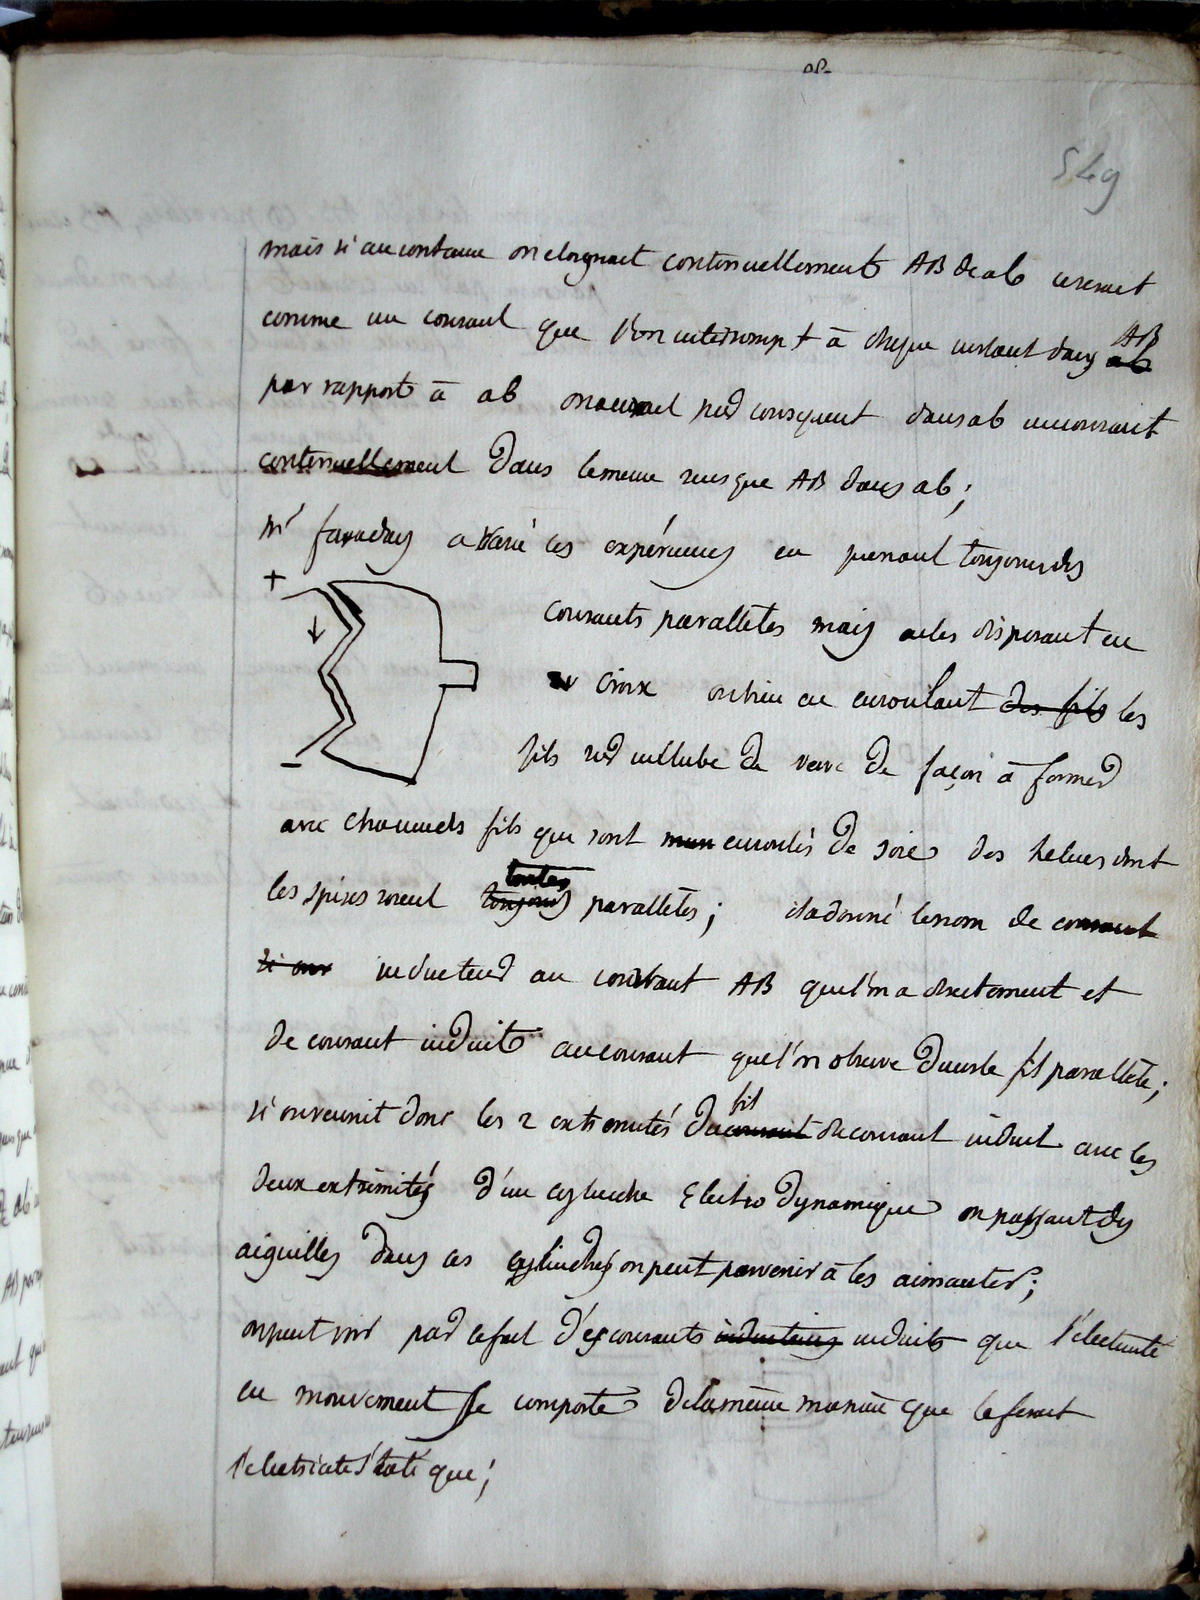 549
mais si au contraire on eloignait continuellement AB de ab ce serait
comme un courant que l'on interrompt à chaque instant dans ab AB
par rapport à ab on aurait par consequent dans ab un courant
continuellement dans le meme sens que AB dans ab ;
Mr faraday a varié ces expériences en prenant toujours des
+
courants paralleles mais en les disposant en
croix ou bien en enroulant des fils les
fils sur un tube de verre de façon à former
-
avec chacun des fils qui sont enroulés de soie des helices dont
les spires soient toujours toutes paralleles ; il a donné le nom de courant
inducteur au courant AB que l'on a directement et
de courant induit au courant que l'on observe dans le fil parallele ;
si on reunit donc les 2 extremités du courant fil de courant induit avec les
deux extrémités d'un cylindre Electro Dynamique on passant des
aiguilles dans ces cylindres on peut parvenir à les aimanter ;
on peut voir par le fait des courants inducteurs induits que l'electricité
en mouvement se comporte de la même maniere que le ferait
l'electricité statique ;